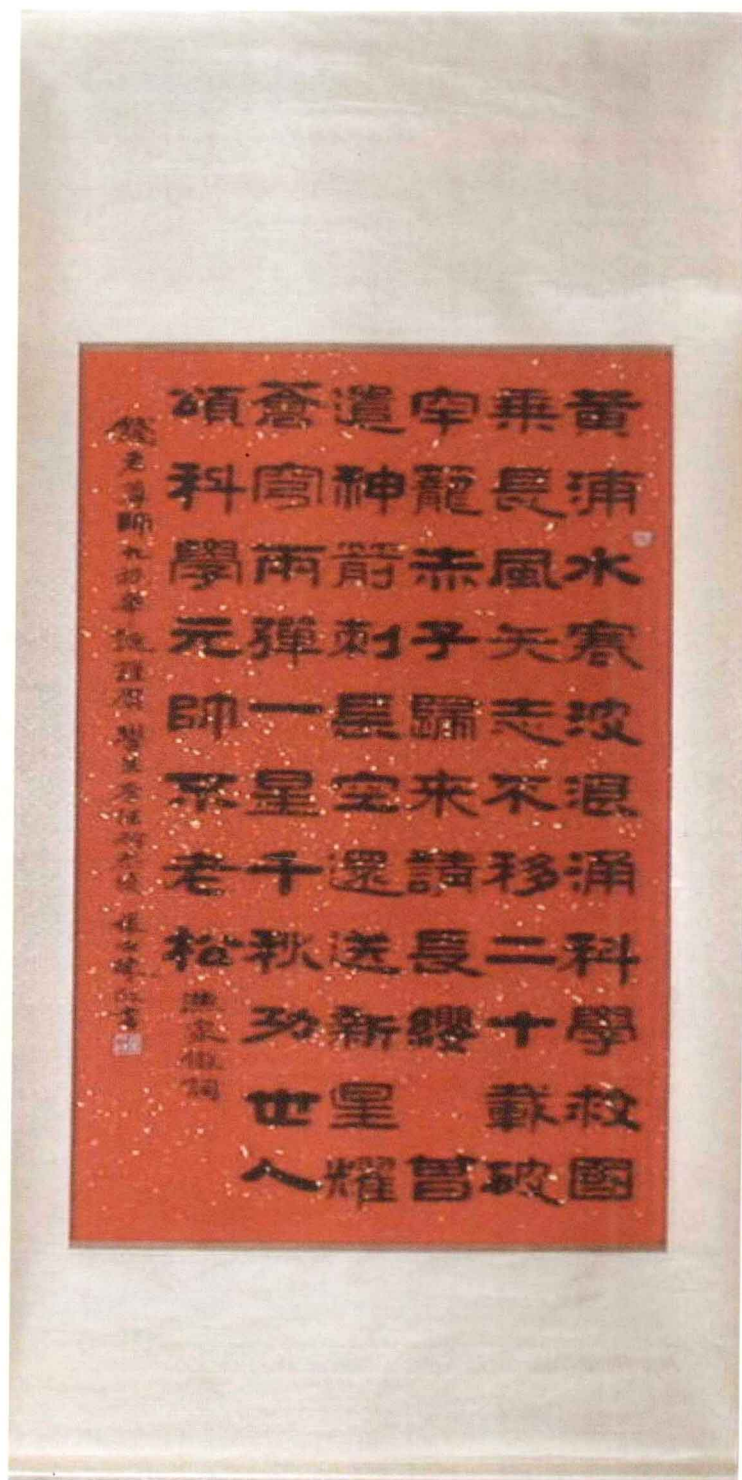 黄浦水寒波浪涌科學救國
乘長風矢志不移二十載破
牢龍赤子歸來請長纓 曾
遣神箭刺長空還送新星耀
蒼穹兩彈一星千秋功世人
頌科學元帥不老松
錢老尊師九